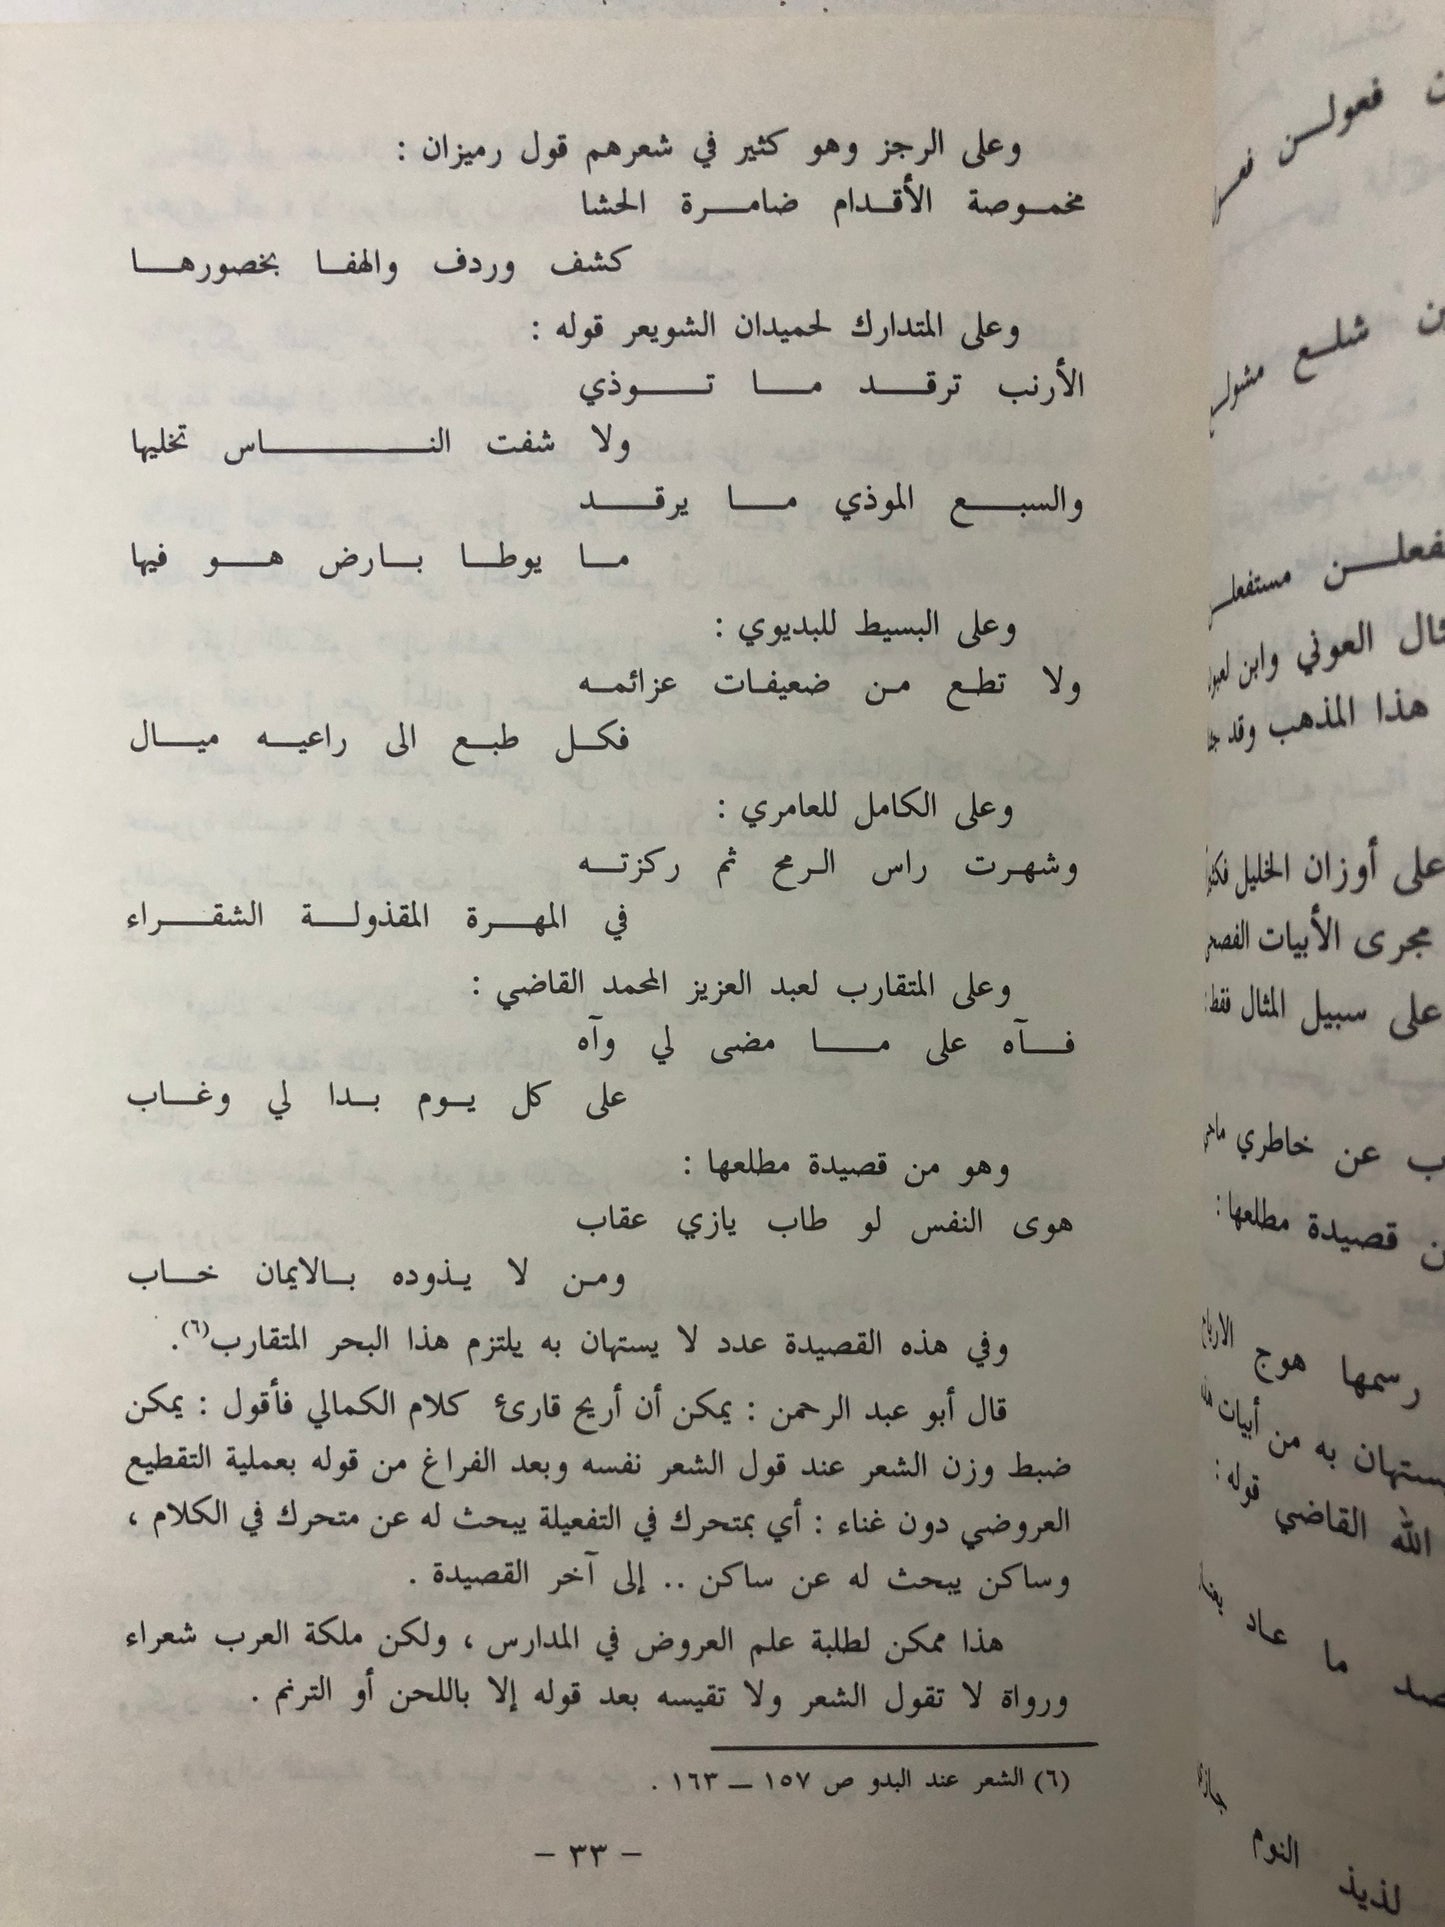 وعلى الرجز وهو كثير في شعرهم قول رميزان :
مخموصة الأقدام ضامرة الحشا
كشف وردف والهفا بخصورها
وعلى المتدارك لحميدان الشويعر قوله :
الأرنب ترقد ما توذي
ولا شفت الناس تخليها
والسبع الموذي ما يرقد
ما يوطا بارض هو فيها
وعلى البسيط للبديوي :
ولا تطع من ضعيفات عزائمه
فكل طبع الى راعيه ميال
وعلى الكامل للعامري :
وشهرت راس الرمح ثم ركزته
في المهرة المقذولة الشقراء
وعلى المتقارب لعبد العزيز المحمد القاضي :
فآه على ما مضى لي وآه
على كل يوم بدا لي وغاب
وهو من قصيدة مطلعها :
هوى النفس لو طاب يازي عقاب
ومن لا يذوده بالايمان خاب
وفي هذه القصيدة عدد لا يستهان به يلتزم هذا البحر المتقارب(٦).
قال أبو عبد الرحمن : يمكن أن أريح قارئ كلام الكمالي فأقول : يمكن
ضبط وزن الشعر عند قول الشعر نفسه وبعد الفراغ من قوله بعملية التقطيع
العروضي دون غناء : أي بمتحرك في التفعيلة يبحث له عن متحرك في الكلام ،
وساكن يبحث له عن ساكن .. إلى آخر القصيدة .
هذا ممكن لطلبة علم العروض في المدارس ، ولكن ملكة العرب شعراء
ورواة لا تقول الشعر ولا تقيسه بعد قوله إلا باللحن أو الترنم .
(٦) الشعر عند البدو ص ١٥٧ — ١٦٣ .
— ٣٣ —
فعولن
شلع
مستفعلن
العوني وابن
هذا المذهب وقد
على أوزان الخليل
مجرى الأبيات
على سبيل المثال فقط
عن خاطري
قصيدة مطلعها :
رسمها هوج
به من أبيات
الله القاضي قوله :
ما عاد
لذيذ النوم